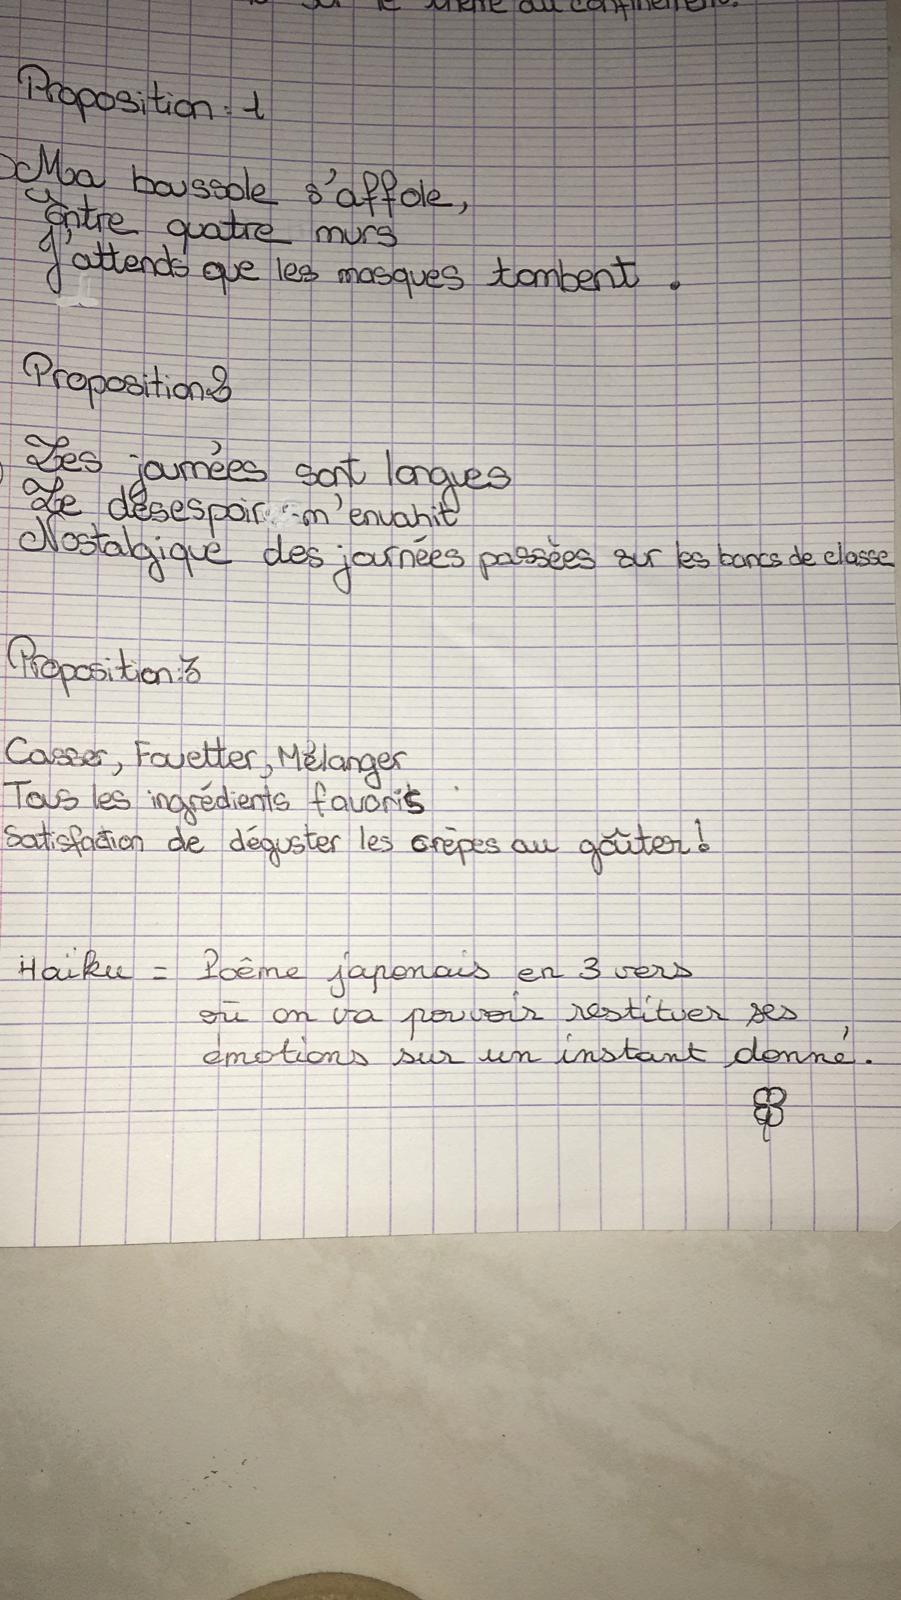 sur le thème du confinement.
Proposition : 1
Ma boussole s'affole,
Entre quatre murs
J'attends que les masques tombent .
Proposition 2
Les journées sont longues
Le désespoir m'envahit
Nostalgique des journées passées sur les bancs de classe
Proposition : 3
Casser, Fouetter, Mélanger
Tous les ingrédients favoris
Satisfaction de déguster les crêpes au goûter !
Haïku = Poême japonais en 3 vers
où on va pouvoir restituer ses
émotions sur un instant donné.